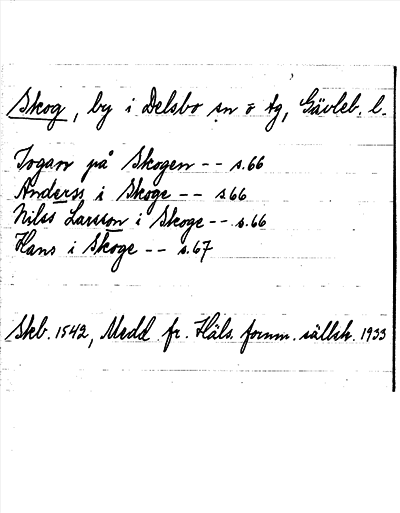 Skog, by i Delsbo sn o tg, Gävleb. l.
Jogan på Skogen -- s.66
Anderss i Skoge -- s66
Nilss Larsson i Skoge -- s.66
Hans i Skoge -- s.67
Skb. 1542, Medd. fr. Häls. fornm. sällsk. 1933